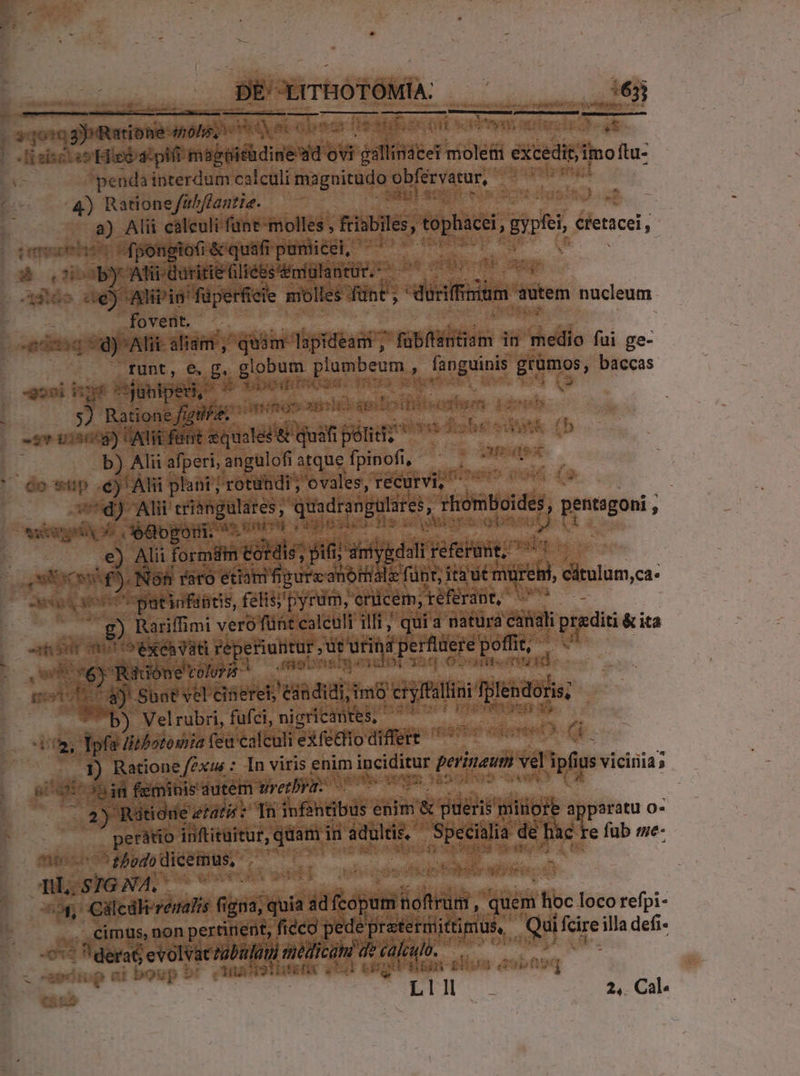 DE LITHOTOMIA. 633
3) Ratione molis,
pisi magnitudine ad ovi gallinacei molem excedit, imo stu-
penda interdum calculi magnitudo observatur,
4) Ratione substantiæ.
a) Alii calculi sunt molles, friabiles, tophacei, gypsei, cretacei,
spongiosi & quasi pumicei,
b) Alii duritie silices æmulantur.
c) Alii in superficie molles sunt, durissimum autem nucleum
fovent.
d) Alii aliam, quàm lapideam, substantiam in medio sui ge-
runt, e. g. globum plumbeum, sanguinis grumos, baccas
juniperi,
5) Ratione figuræ.
a) Alii sunt æquales & quasi politi,
b) Alii asperi, angulosi atque spinosi,
c) Alii plani, rotundi, ovales, recurvi,
d) Alii triangulares, quadrangulares, rhomboides, pentagoni,
octogoni.
e) Alii formam cordis, pisi, amygdali referunt,
f) Non raro etiam figuræ anomalæ sunt, ita ut murem, catulum, ca-
put infantis, felis, pyrum, crucem, referant,
g) Rarissimi verò sunt calculi illi, qui a natura canali præditi & ita
excavati reperiuntur, ut urina perfluere possit,
6) Ratione coloris
a) Sunt vel cinerei, candidi, imò crystallini splendoris,
b) Vel rubri, fusci, nigricantes,
2, Ipsa lithotomia seu calculi exsectio differt
1) Ratione sexus: In viris enim inciditur perinæum vel ipsius vicinia;
in feminis autem urethra.
2) Ratione ætatis: In infantibus enim & pueris minore apparatu o-
peratio instituitur, quam in adultis, Specialia de hac re sub me-
thodo dicemus,
III, SIGNA,
1, Calculi renalis signa, quia ad scopum nostrum, quem hoc loco respi-
cimus, non pertinent, sicco pede prætermittimus, Qui scire illa desi-
derat, evolvat tabulam medicam de calculo.
Llll 2, Cal-